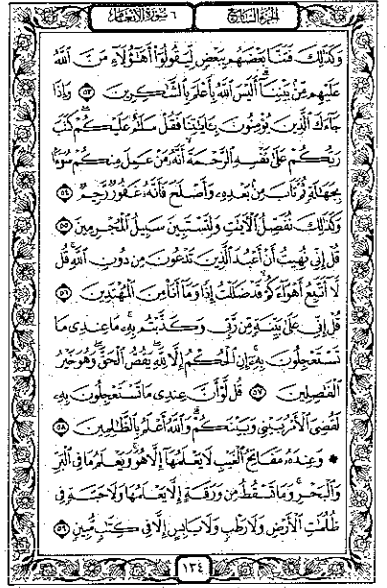 الجزء السابع
٦ سورة الأنعام
وَكَذَٰلِكَ فَتَنَّا بَعْضَهُم بِبَعْضٍ لِّيَقُولُوٓا۟ أَهَٰٓؤُلَآءِ مَنَّ ٱللَّهُ
عَلَيْهِم مِّنۢ بَيْنِنَآ أَلَيْسَ ٱللَّهُ بِأَعْلَمَ بِٱلشَّٰكِرِينَ ٥٣ وَإِذَا
جَآءَكَ ٱلَّذِينَ يُؤْمِنُونَ بِـَٔايَٰتِنَا فَقُلْ سَلَٰمٌ عَلَيْكُمْ كَتَبَ
رَبُّكُمْ عَلَىٰ نَفْسِهِ ٱلرَّحْمَةَ أَنَّهُۥ مَنْ عَمِلَ مِنكُمْ سُوٓءًۢا
بِجَهَٰلَةٍ ثُمَّ تَابَ مِنۢ بَعْدِهِۦ وَأَصْلَحَ فَأَنَّهُۥ غَفُورٌ رَّحِيمٌ ٥٤
وَكَذَٰلِكَ نُفَصِّلُ ٱلْـَٔايَٰتِ وَلِتَسْتَبِينَ سَبِيلُ ٱلْمُجْرِمِينَ ٥٥
قُلْ إِنِّى نُهِيتُ أَنْ أَعْبُدَ ٱلَّذِينَ تَدْعُونَ مِن دُونِ ٱللَّهِ قُل
لَّآ أَتَّبِعُ أَهْوَآءَكُمْ قَدْ ضَلَلْتُ إِذًا وَمَآ أَنَا۠ مِنَ ٱلْمُهْتَدِينَ ٥٦
قُلْ إِنِّى عَلَىٰ بَيِّنَةٍ مِّن رَّبِّى وَكَذَّبْتُم بِهِۦ مَا عِندِى مَا
تَسْتَعْجِلُونَ بِهِۦٓ إِنِ ٱلْحُكْمُ إِلَّا لِلَّهِ يَقُصُّ ٱلْحَقَّ وَهُوَ خَيْرُ
ٱلْفَٰصِلِينَ ٥٧ قُل لَّوْ أَنَّ عِندِى مَا تَسْتَعْجِلُونَ بِهِۦ
لَقُضِىَ ٱلْأَمْرُ بَيْنِى وَبَيْنَكُمْ وَٱللَّهُ أَعْلَمُ بِٱلظَّٰلِمِينَ ٥٨
وَعِندَهُۥ مَفَاتِحُ ٱلْغَيْبِ لَا يَعْلَمُهَآ إِلَّا هُوَ وَيَعْلَمُ مَا فِى ٱلْبَرِّ
وَٱلْبَحْرِ وَمَا تَسْقُطُ مِن وَرَقَةٍ إِلَّا يَعْلَمُهَا وَلَا حَبَّةٍ فِى
ظُلُمَٰتِ ٱلْأَرْضِ وَلَا رَطْبٍ وَلَا يَابِسٍ إِلَّا فِى كِتَٰبٍ مُّبِينٍ ٥٩
١٣٤